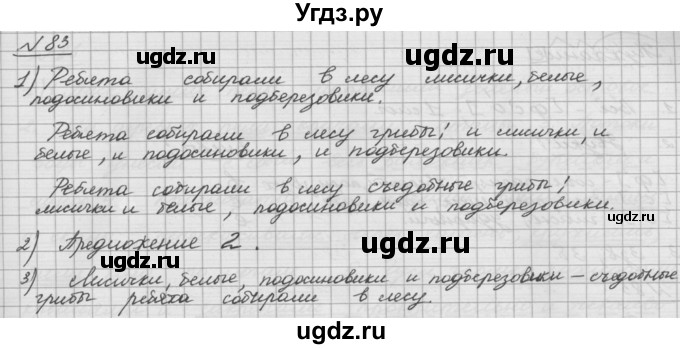 Угдз.ру
№ 83
1) Ребята собирали в лесу лисички, белые,
подосиновики и подберезовики.
Ребята собирали в лесу грибы: и лисички, и
белые, и подосиновики, и подберезовики.
Ребята собирали в лесу съедобные грибы:
лисички и белые, подосиновики и подберезовики.
2) Предложение 2.
3) Лисички, белые, подосиновики и подберезовики – съедобные
грибы ребята собирали в лесу.
ugdz.ru
ugdz.ru
ugdz.ru
ugdz.ru
ugdz.ru
ugdz.ru
ugdz.ru